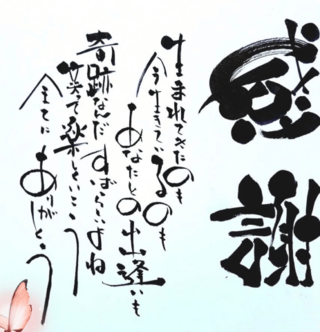 感謝
生まれてきたのも
今生きているのも
あなたとの出逢いも
奇跡なんだすばらしいよね
笑って楽しといこう
全てにありがとう